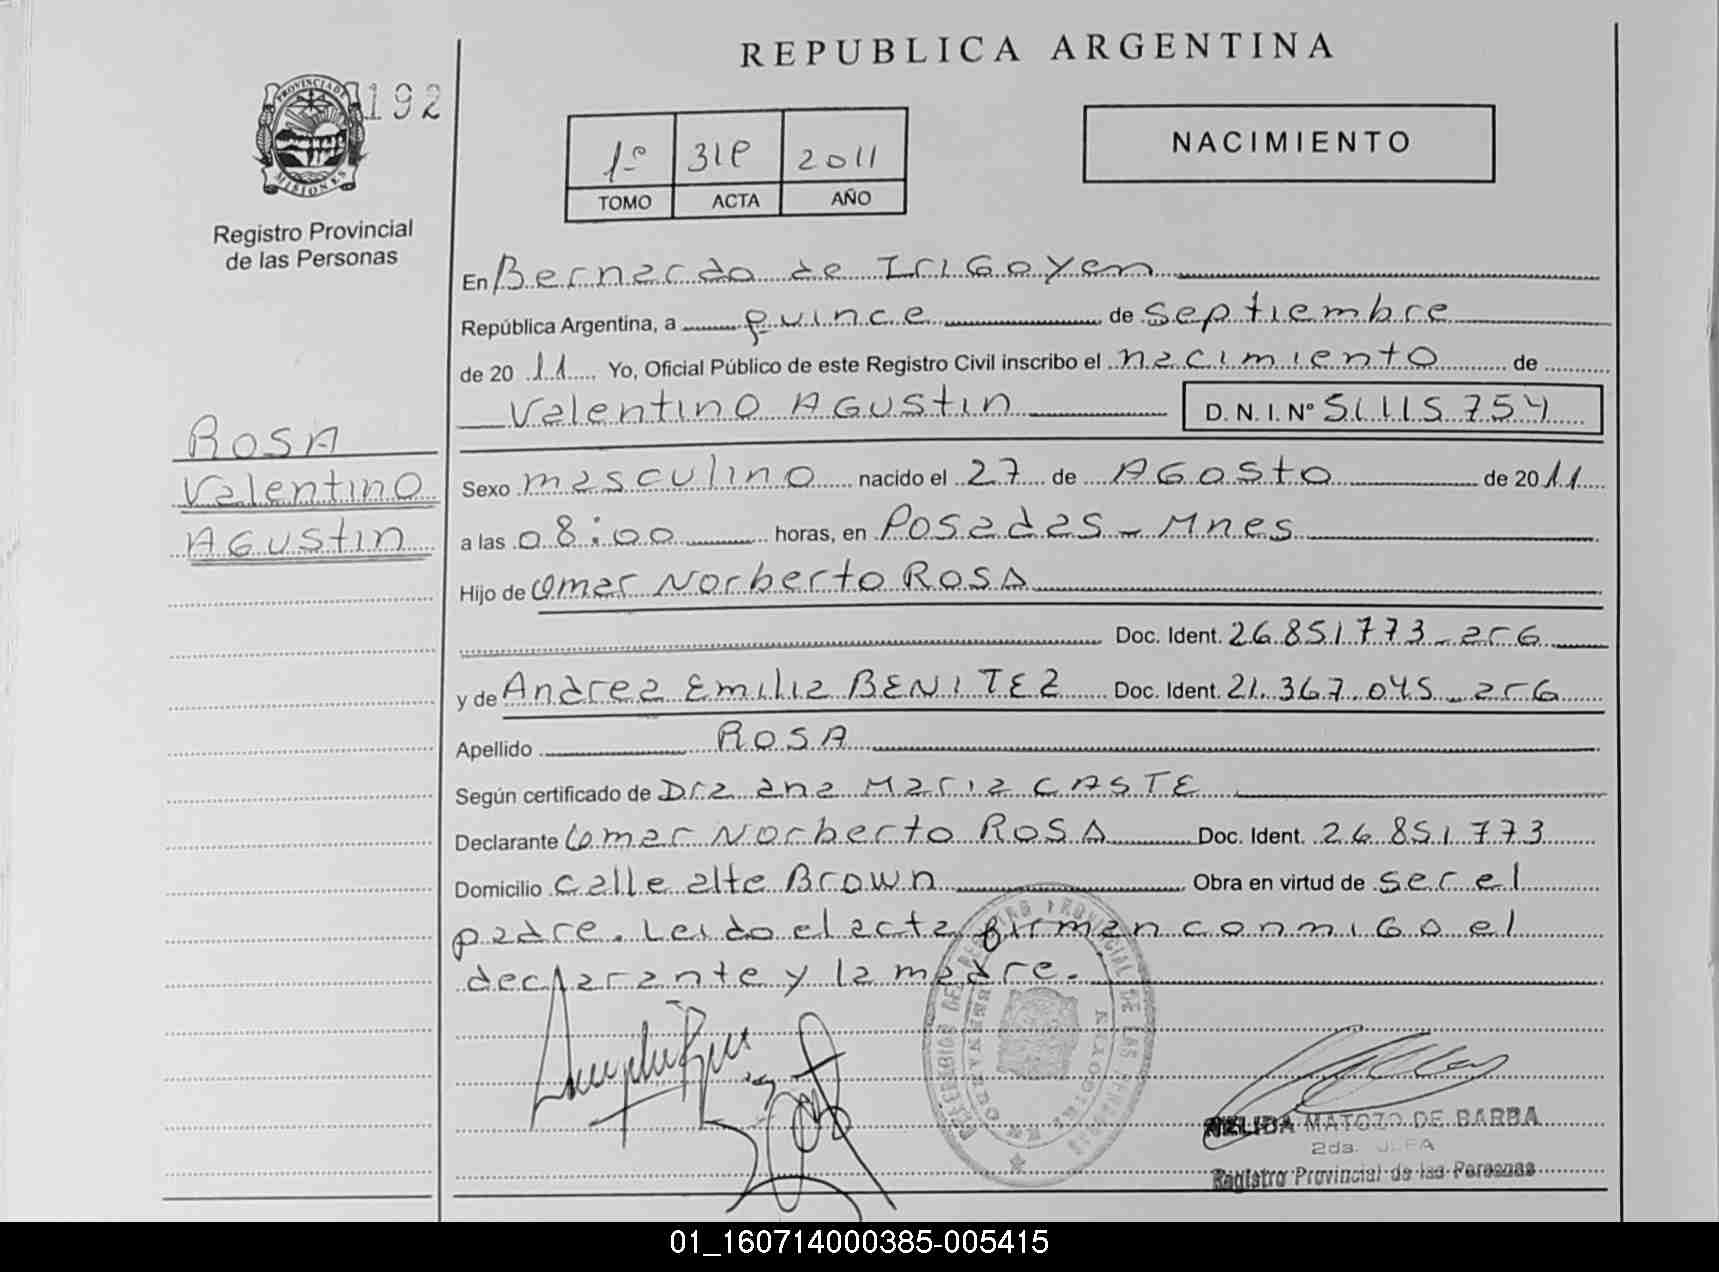 REPUBLICA ARGENTINA
192
PROVINCIA DE MISIONES
Registro Provincial
de las Personas
1º 31P 2011
TOMO ACTA AÑO
NACIMIENTO
En Bernardo de IriGoyen
República Argentina, a quince de Septiembre
de 20 11 Yo, Oficial Público de este Registro Civil inscribo el nacimiento de
Valentino AGustin D. N. I. Nº 51.115.754
ROSA
Valentino
AGustin
Sexo masculino nacido el 27 de AGosto de 2011
a las 08:00 horas, en Posadas - Mnes
Hijo de Omar Norberto ROSA
Doc. Ident. 26.851.773 - arG
y de Andrea Emilia BENITEZ Doc. Ident. 21.367.045 - arG
Apellido ROSA
Según certificado de Dra ana Maria CASTE
Declarante Omar Norberto ROSA Doc. Ident. 26.851.773
Domicilio calle alte Brown Obra en virtud de ser el
padre. Leido el acta firman conmiGo el
declarante y la madre.
NELIDA MATOZO DE BARBA
2da. JEFA
Registro Provincial de las Personas
01_160714000385-005415